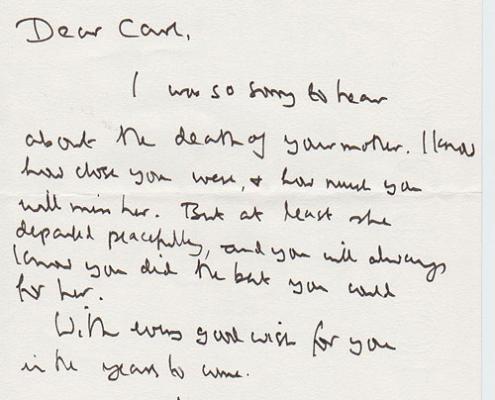 Dear Carl,
I was so sorry to hear
about the death of your mother. I know
how close you were, & how much you
will miss her. But at least she
departed peacefully, and you will always
know you did the best you could
for her.
With every good wish for you
in the years to come.